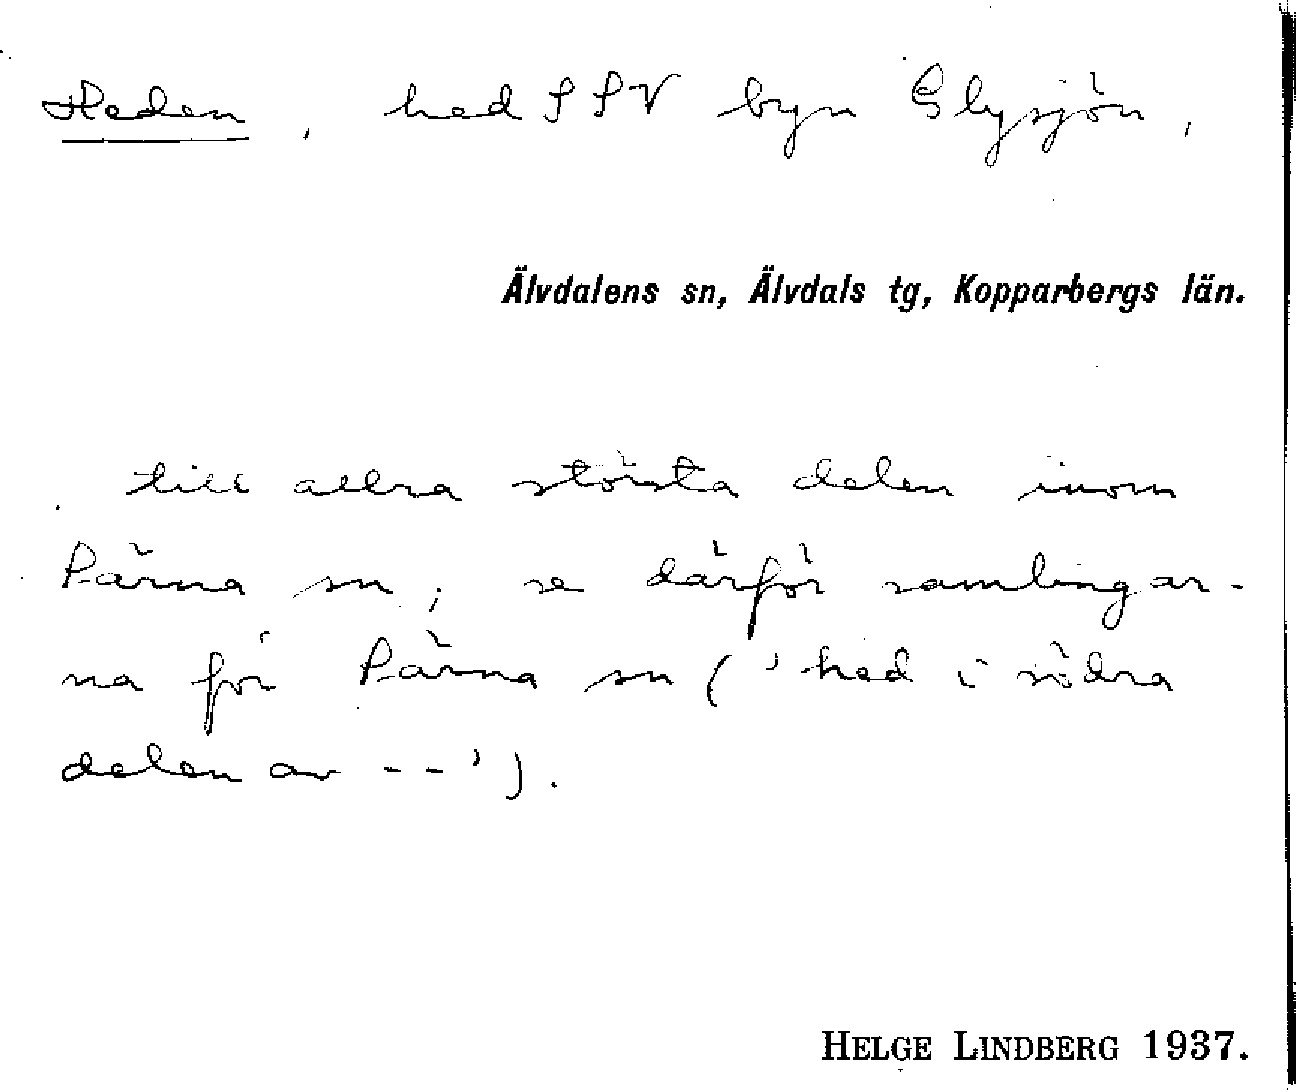 Heden, hed SSV byn Glysjön,
Älvdalens sn, Älvdals tg, Kopparbergs län.
till allra största delen inom
Särna sn; se därför samlingar-
na för Särna sn ('hed i södra
delen av --').
HELGE LINDBERG 1937.